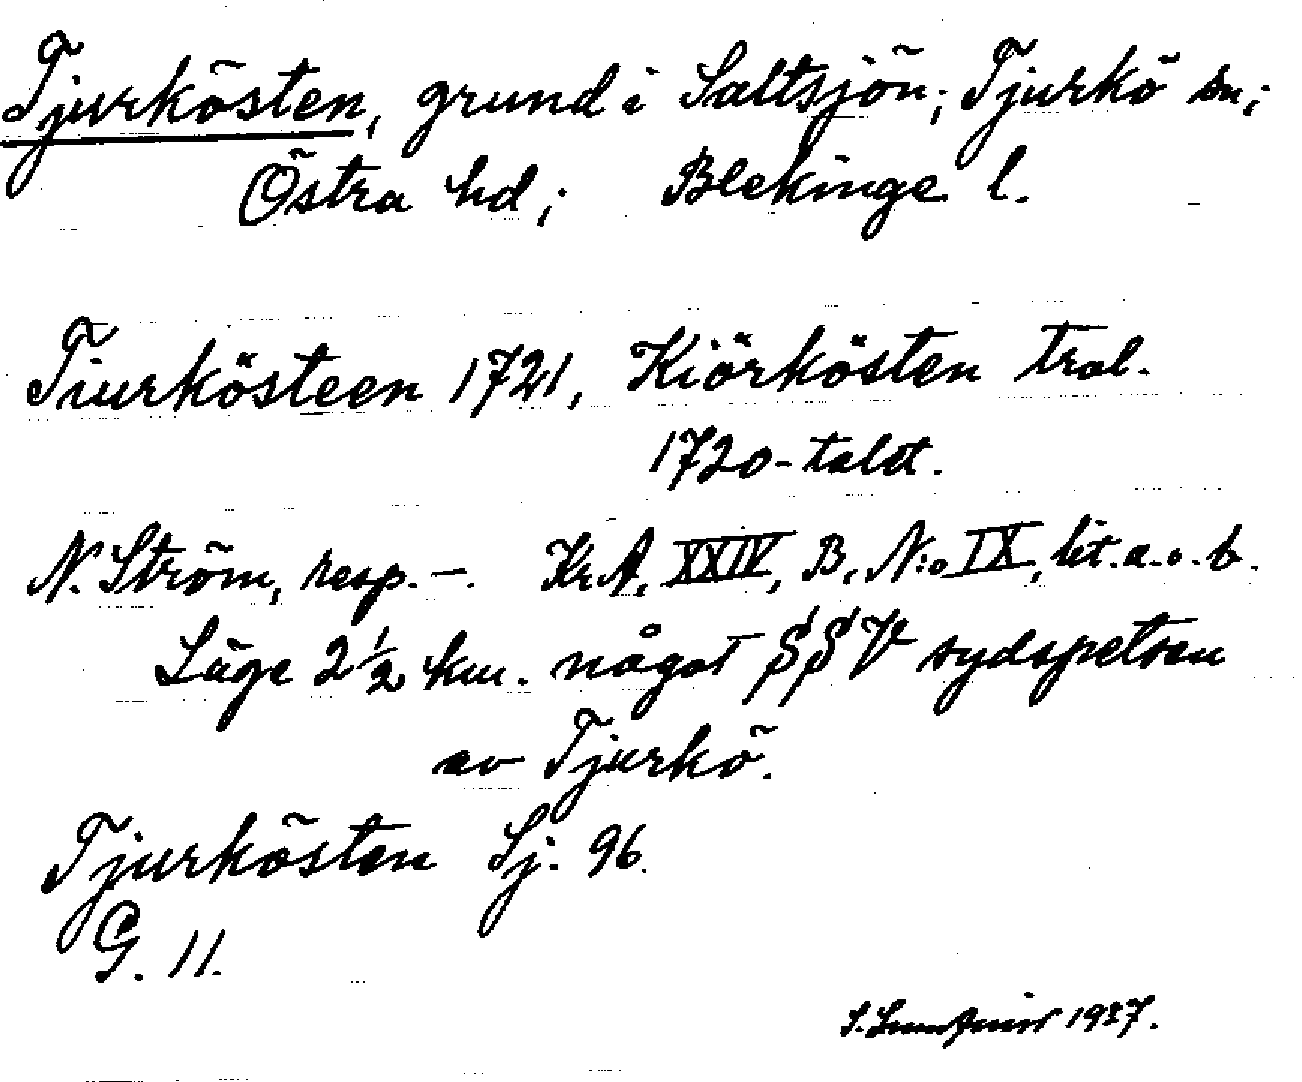 Tjurkösten, grund i Saltsjön; Tjurkö sn;
Östra hd; Blekinge l.
Tiurkösteen 1721, Kiörkösten trol.
1720-talet.
N. Ström, resp. –. Kr.A, XXIV, B, N:o IX, lit. a. o. b.
Läge 2 1/2 km. något SSV sydspetsen
av Tjurkö.
Tjurkösten Sj. 96.
G. 11.
S. 1927.